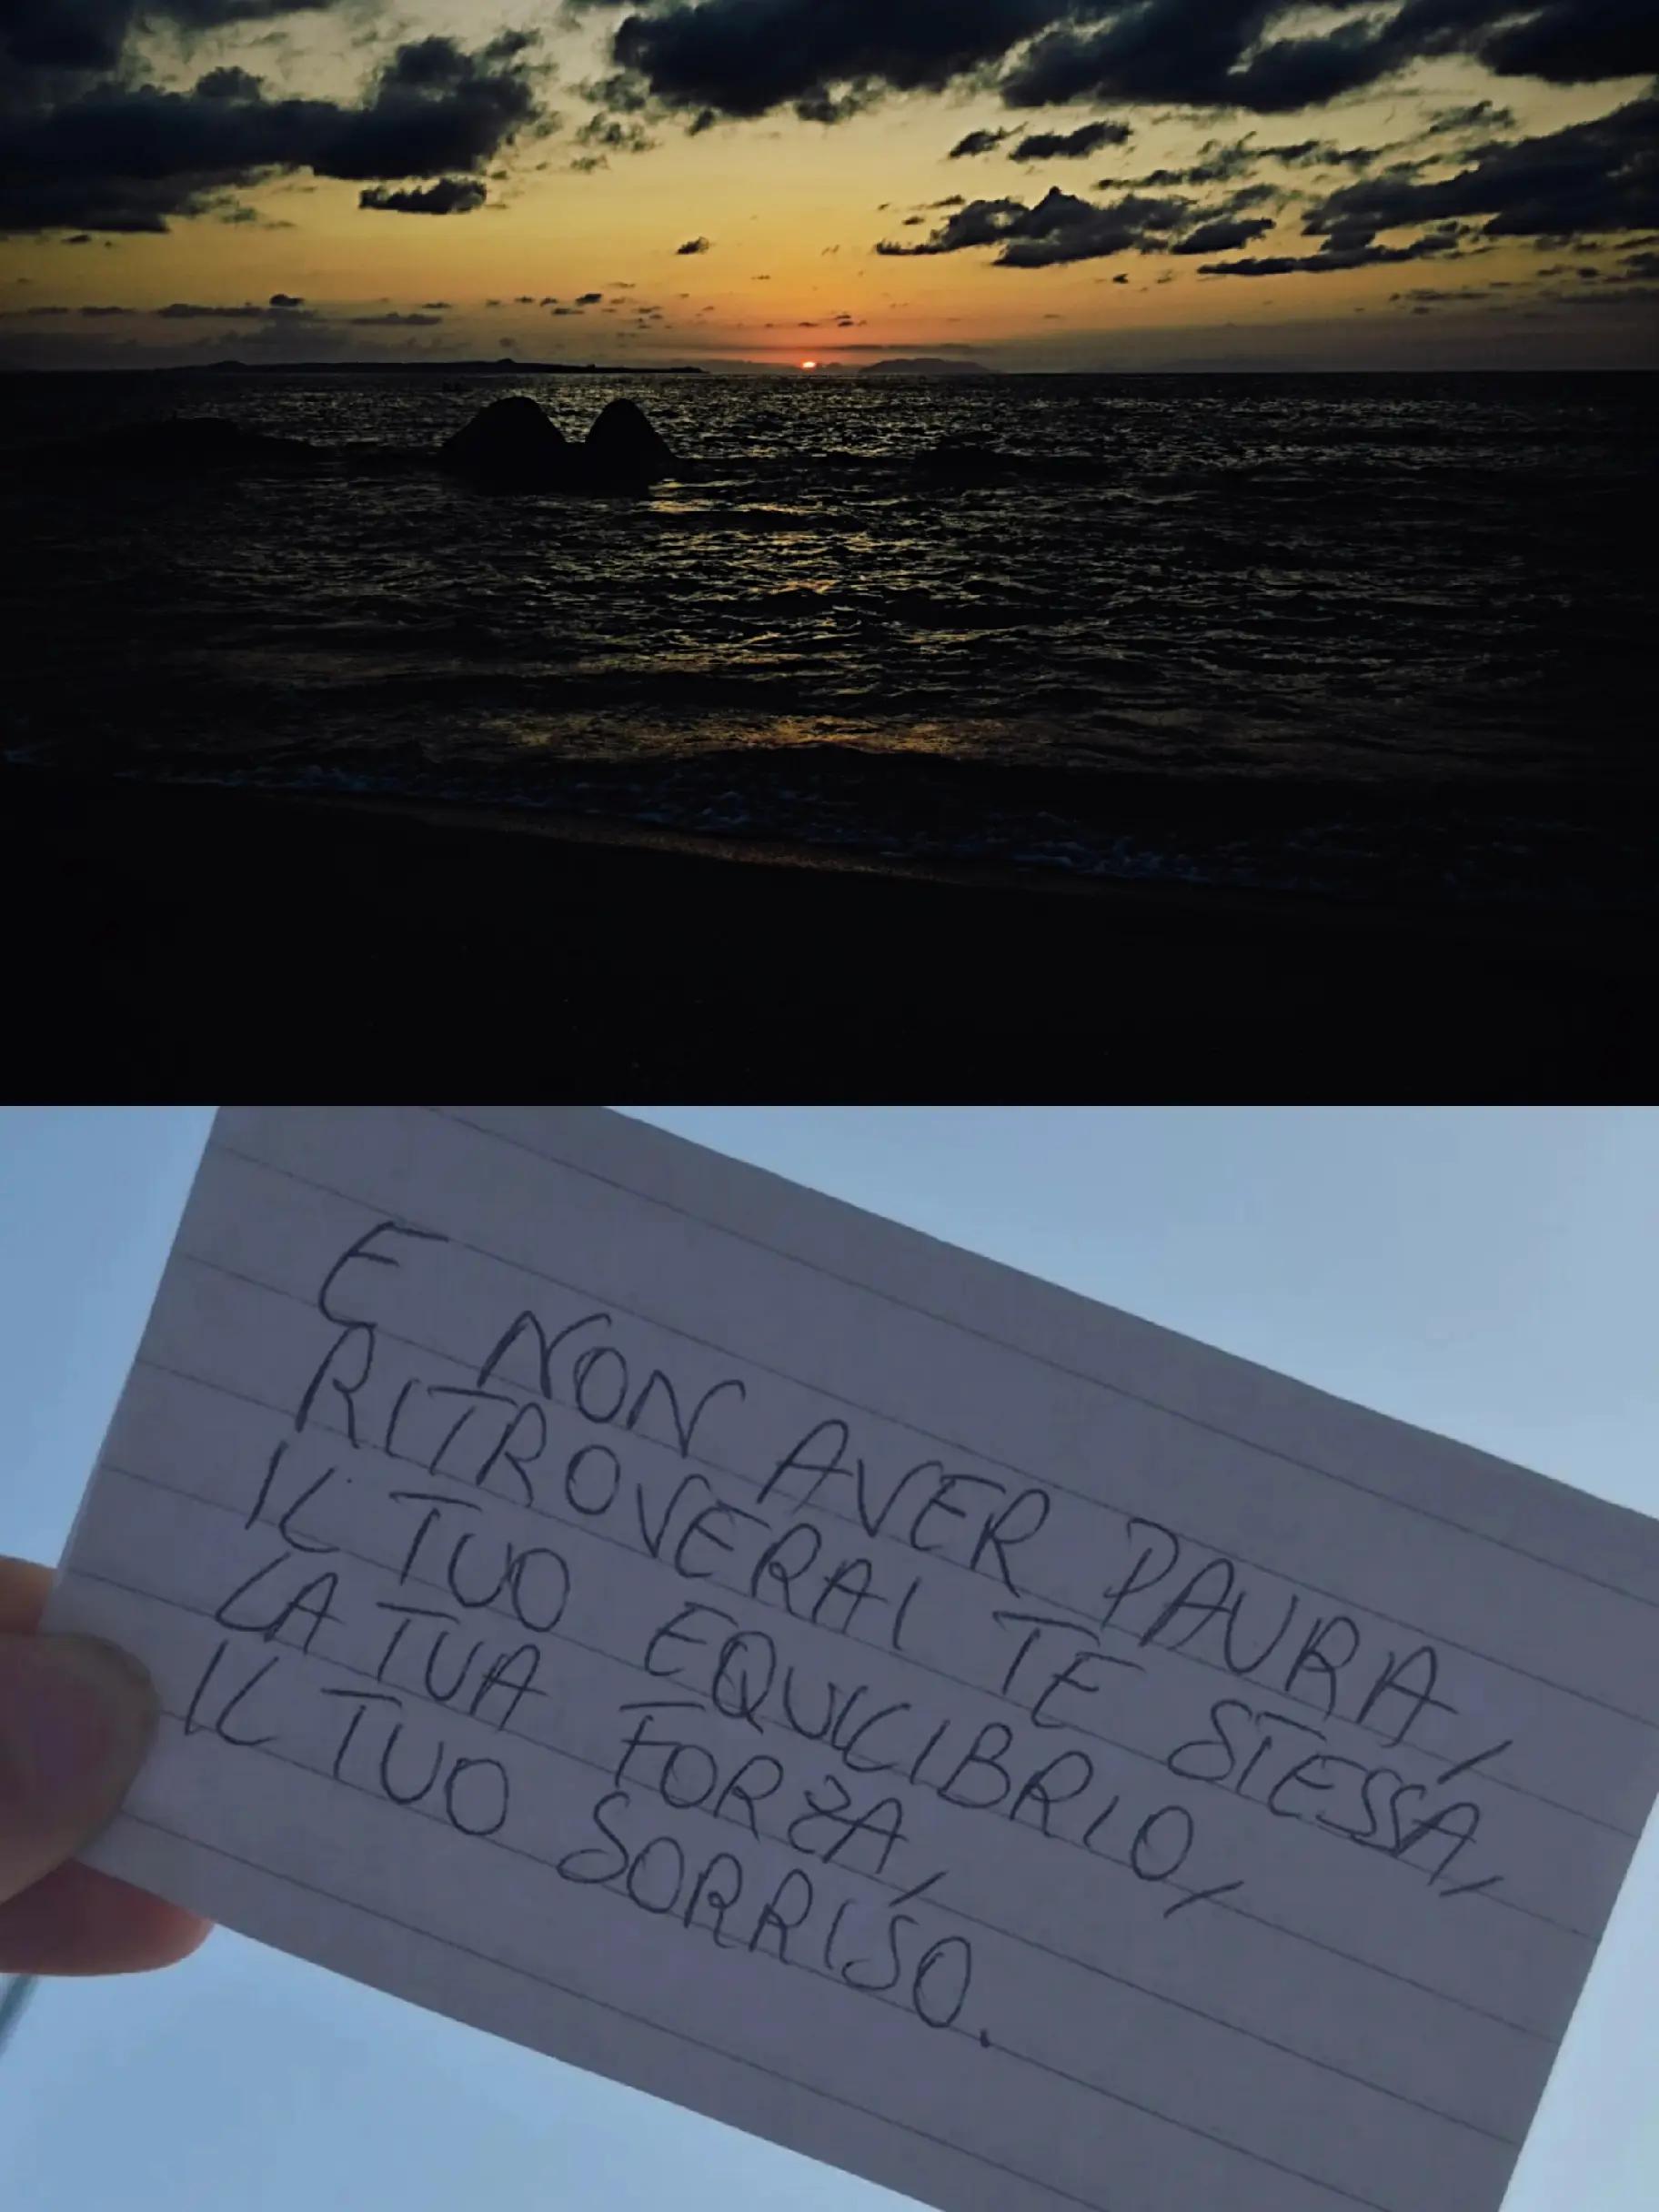 E NON AVER PAURA,
RITROVERAI TE STESSA,
IL TUO EQUILIBRIO,
LA TUA FORZA,
IL TUO SORRISO.